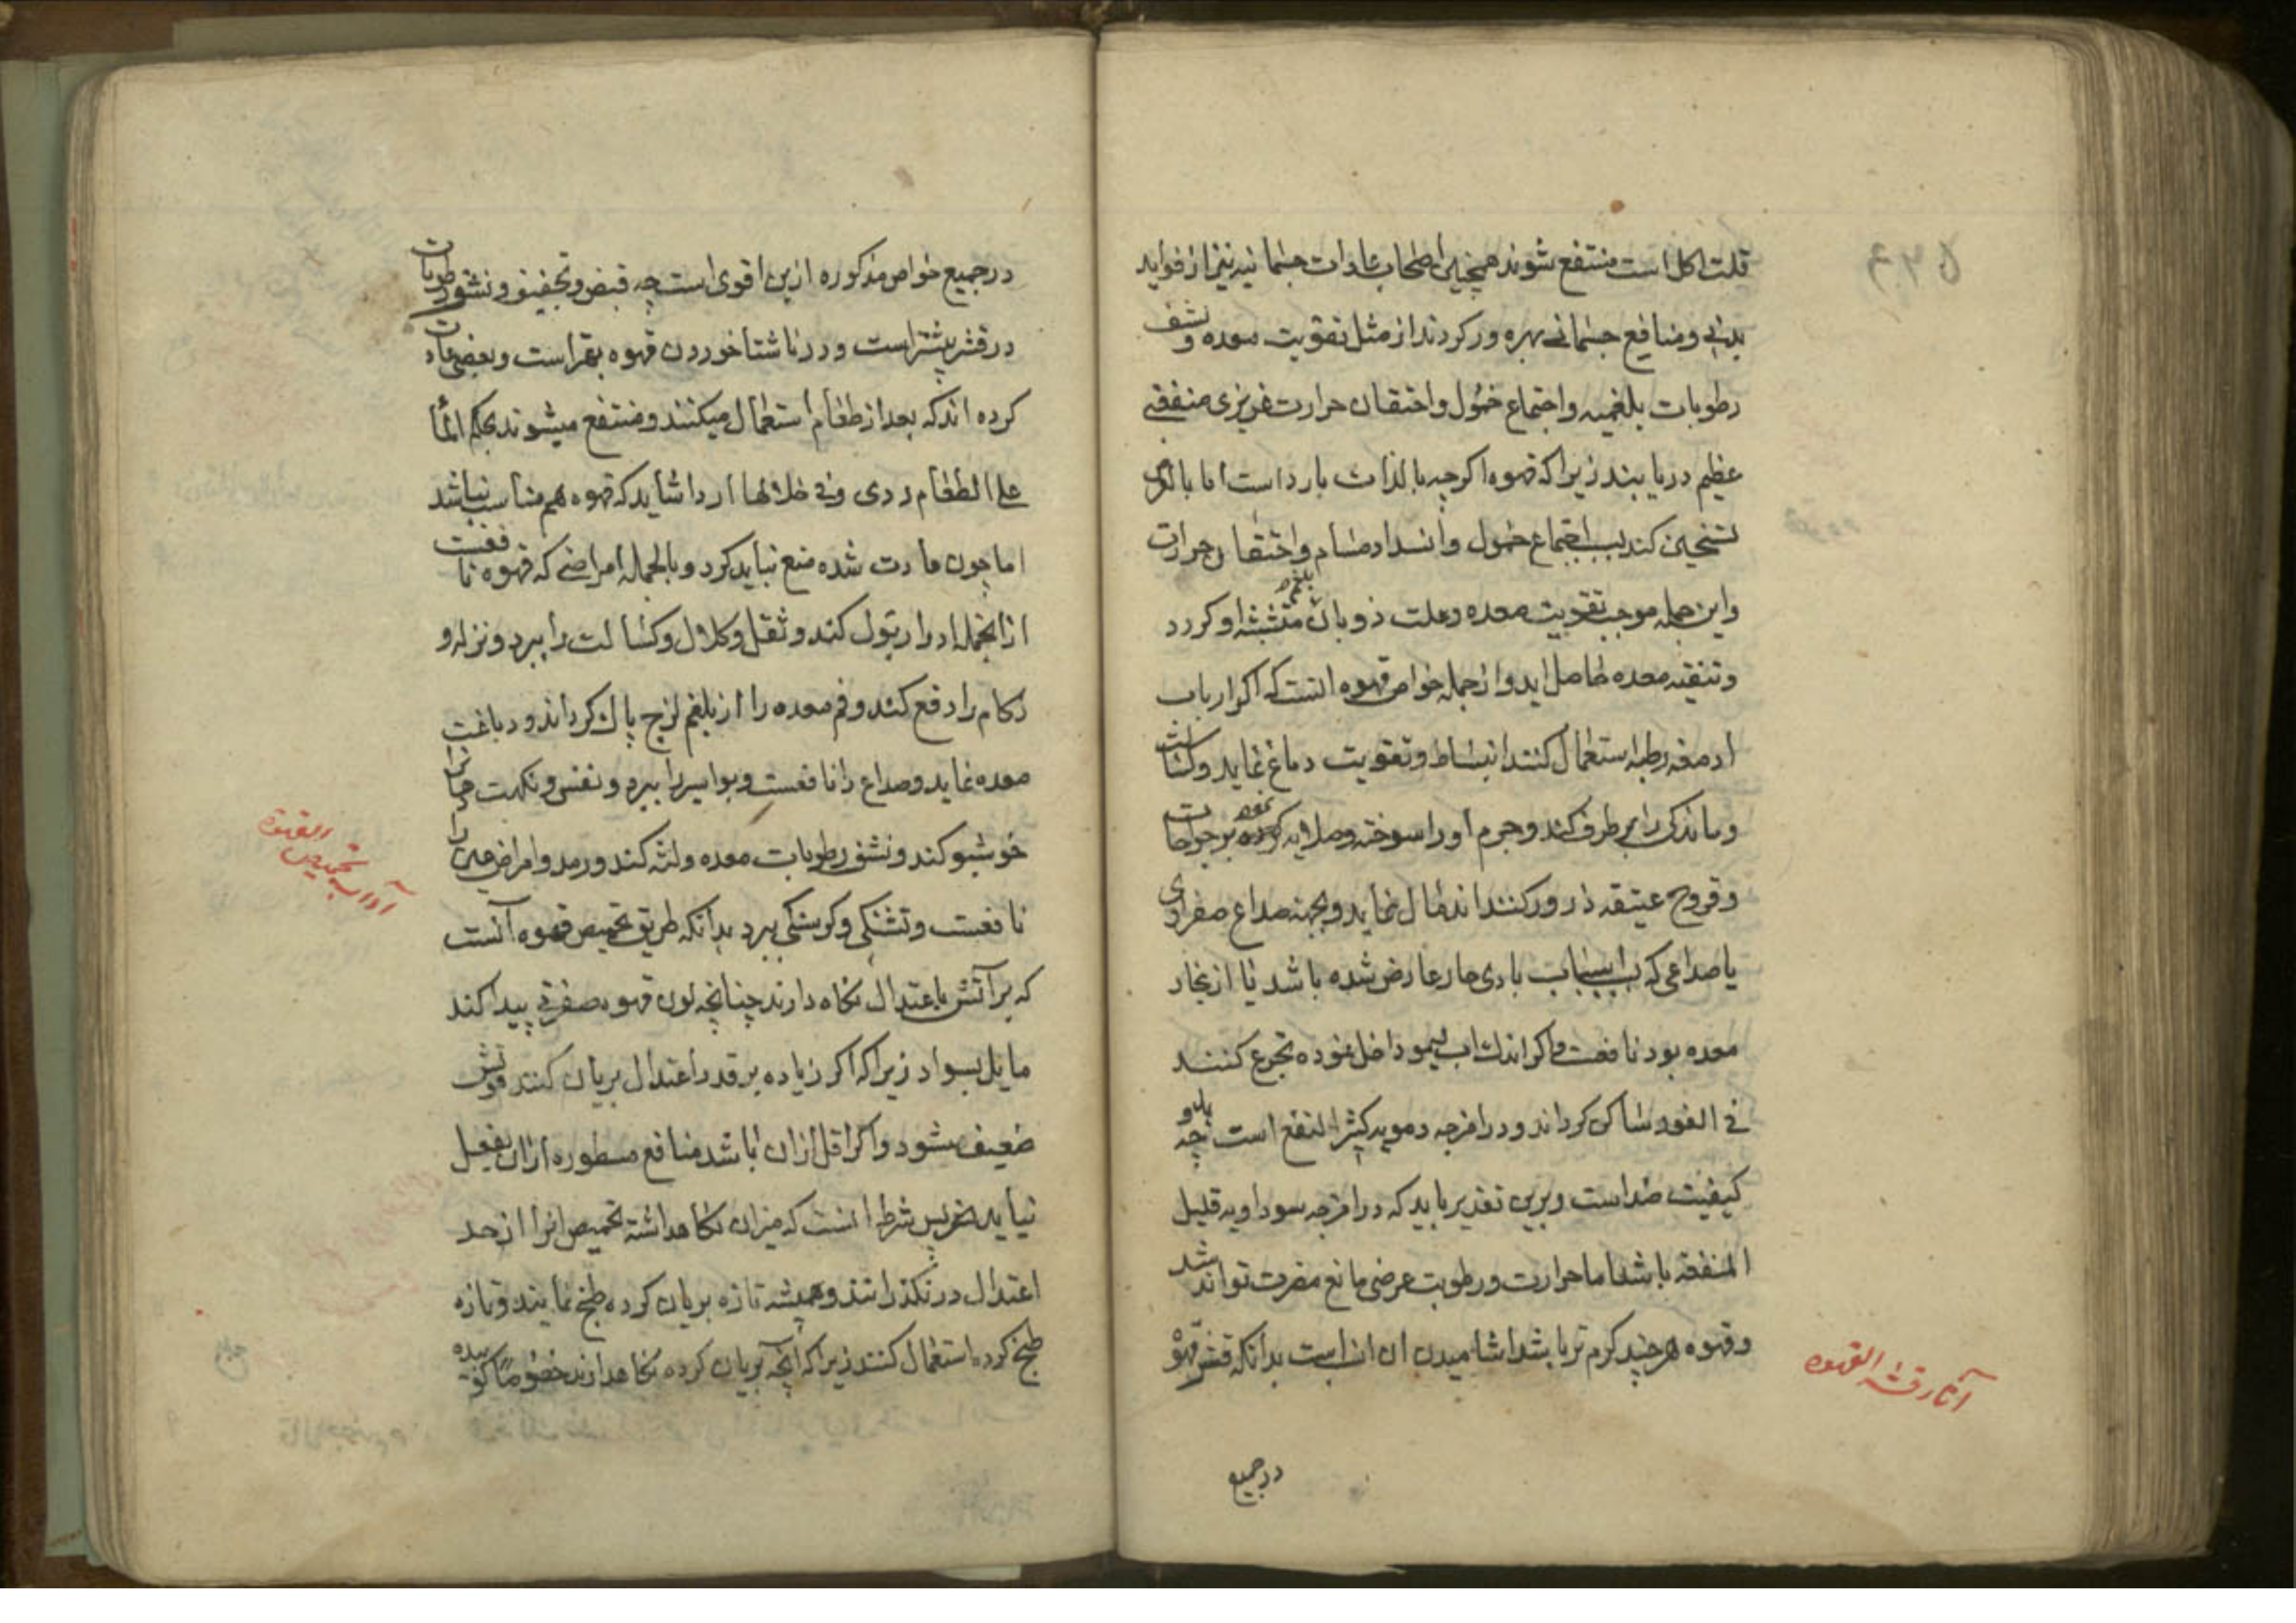 قلت اکل است منتفع شوند همچنین اصحاب عادات جسمانیه نیز از فواید
بدنی و منافع جسمانی بهره ور کردند از مثل تقویت معده و نشف
رطوبات بلغمیه و اجتماع خمول و احتقان حرارت غریزی منفعتی
عظیم دریابند زیرا که قهوه اکرچه بالذات بارد است اما بالعرض
تسخین کند بسبب اجتماع خمول و انسداد مسام و احتقان حرارت
و این جمله موجب تقویت معده و علت ذوبان بلغم متشبثه او کردد
و تنقیه معده حاصل اید و از جمله خواص قهوه انست که اکر ارباب
ادمغه رطبه استعمال کنند انبساط و تقویت دماغ نماید و کسالت
و ماندکی را برطرف کند و جرم او را سوخته و صلایه کرده نموده بر جراحات
و قروح عتیقه ذرور کنند اندمال نماید و بجهته صداع صفراوی
یا صداعی که باسباب بادی حار عارض شده باشد یا از بخار
معده بود نافعست و اکر اندک اب لیمو داخل نموده تجرع کنند
فی الفور ساکن کرداند و در امزجه دمویه کثیر النفع است چه بدو
کیفیت ضد است و برین تقدیر باید که در امزجه سوداویه قلیل
المنفعة باشد اما حرارت و رطوبت عرضی مانع مضرت تواند شد
و قهوه هر چند کرم تر باشد اشامیدن ان انسب است بدانکه قشر قهوه
آثار قشر القهوه
در جمیع
در جمیع خواص مذکوره ازین اقوی است چه قبض و تجفیف و نشف رطوبات
در قشر بیشتر است و در ناشتا خوردن قهوه بهتر است و بعضی عادت
کرده اند که بعد از طعام استعمال میکنند و منتفع میشوند بحکم الما
علی الطعام ردی و فی خلالها اردا شاید که قهوه هم مناسب نباشد
اما چون عادت شده منع نباید کرد و بالجمله امراضی که قهوه نافعست
از انجمله ادرار بول کند و ثقل و کلال و کسالت را ببرد و نزله و
زکام را دفع کند و فم معده را از بلغم لزج پاک کرداند و دباغت
معده نماید و صداع را نافعست و بواسیر را ببرد و نفس و نکهت دهان را
خوشبو کند و نشف رطوبات معده و لثه کند و رمد و امراض عین را
نافعست و تشنکی و کرسنکی ببرد بدانکه طریق تحمیص قهوه آنست
آداب تحمیص القهوه
که بر آتش باعتدال نکاه دارند چنانچه لون قهوه صفرتی پیدا کند
مایل بسواد زیرا که اکر زیاده بر قدر اعتدال بریان کنند قوتش
ضعیف شود و اکر اقل ازان باشد منافع مسطوره ازان بفعل
نیاید پس شرط انست که میزان نکاهداشته تحمیص انرا از حد
اعتدال در نکذرانند و همیشه تازه بریان کرده طبخ نمایند و تازه
طبخ کرده استعمال کنند زیرا که انچه بریان کرده نکاهدارند خصوصاً کوبیده